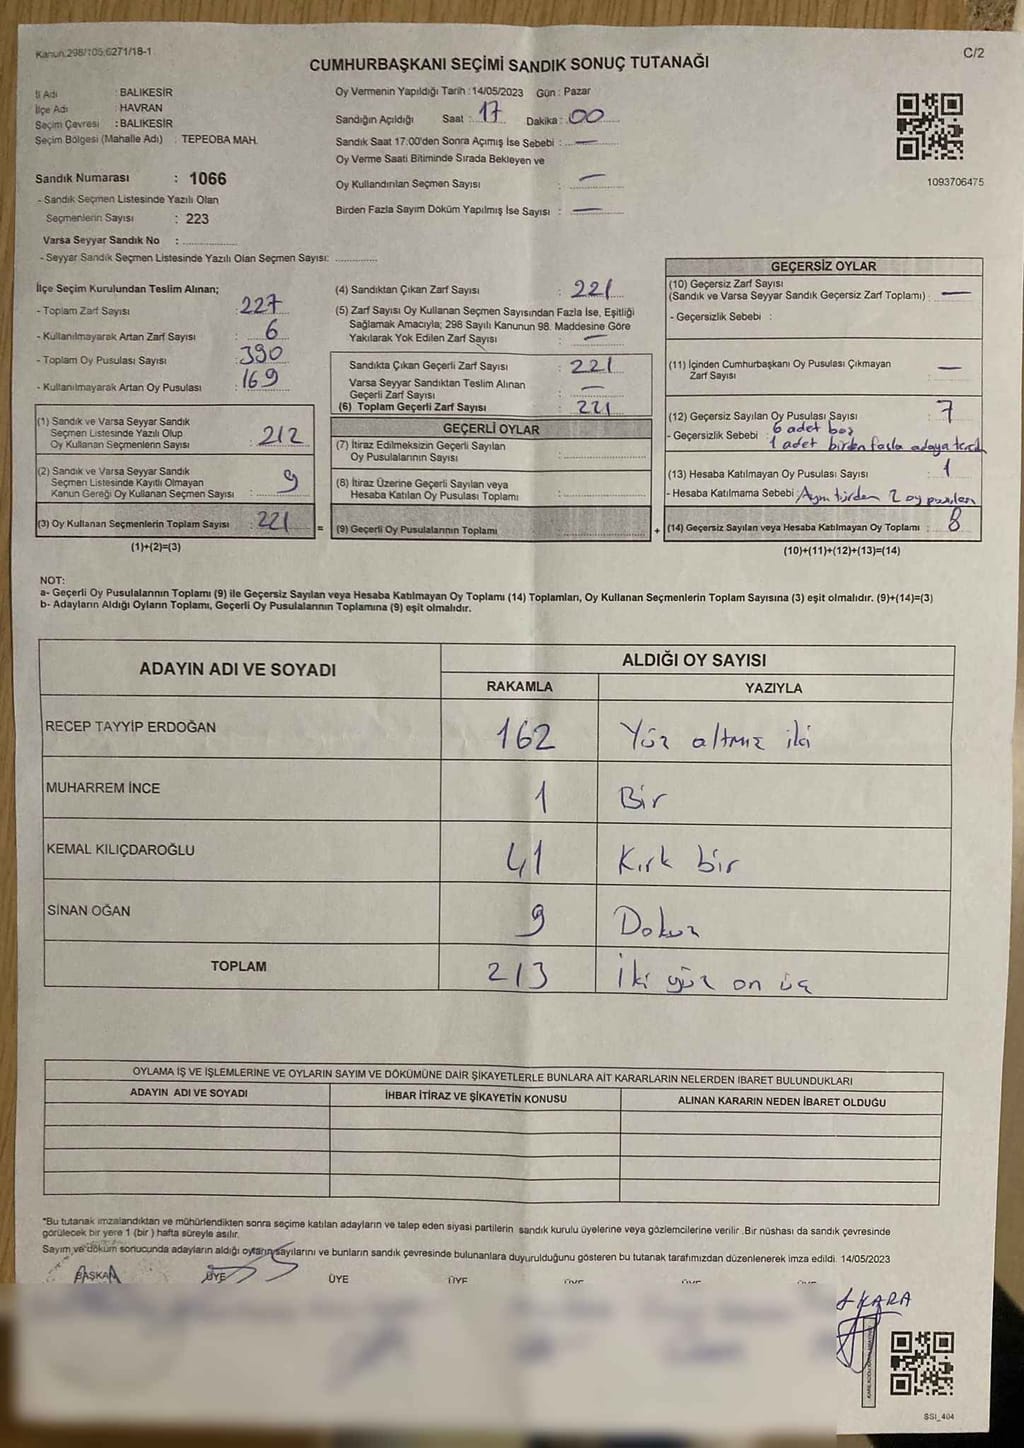 Kanun.298/105,6271/18-1
C/2
CUMHURBAŞKANI SEÇİMİ SANDIK SONUÇ TUTANAĞI
İl Adı : BALIKESİR
İlçe Adı : HAVRAN
Seçim Çevresi : BALIKESİR
Seçim Bölgesi (Mahalle Adı) : TEPEOBA MAH.
Sandık Numarası : 1066
- Sandık Seçmen Listesinde Yazılı Olan
Seçmenlerin Sayısı : 223
Varsa Seyyar Sandık No :
- Seyyar Sandık Seçmen Listesinde Yazılı Olan Seçmen Sayısı:
Oy Vermenin Yapıldığı Tarih : 14/05/2023 Gün : Pazar
Sandığın Açıldığı Saat : 17 Dakika : 00
Sandık Saat 17.00'den Sonra Açımış İse Sebebi : —
Oy Verme Saati Bitiminde Sırada Bekleyen ve
Oy Kullandırılan Seçmen Sayısı : —
Birden Fazla Sayım Döküm Yapılmış İse Sayısı : —
1093706475
İlçe Seçim Kurulundan Teslim Alınan;
- Toplam Zarf Sayısı : 227
- Kullanılmayarak Artan Zarf Sayısı : 6
- Toplam Oy Pusulası Sayısı : 390
- Kullanılmayarak Artan Oy Pusulası : 169
(1) Sandık ve Varsa Seyyar Sandık
Seçmen Listesinde Yazılı Olup
Oy Kullanan Seçmenlerin Sayısı : 212
(2) Sandık ve Varsa Seyyar Sandık
Seçmen Listesinde Kayıtlı Olmayan
Kanun Gereği Oy Kullanan Seçmen Sayısı : 9
(3) Oy Kullanan Seçmenlerin Toplam Sayısı : 221
(1)+(2)=(3)
(4) Sandıktan Çıkan Zarf Sayısı : 221
(5) Zarf Sayısı Oy Kullanan Seçmen Sayısından Fazla İse, Eşitliği
Sağlamak Amacıyla; 298 Sayılı Kanunun 98. Maddesine Göre
Yakılarak Yok Edilen Zarf Sayısı : —
Sandıkta Çıkan Geçerli Zarf Sayısı : 221
Varsa Seyyar Sandıktan Teslim Alınan
Geçerli Zarf Sayısı : —
(6) Toplam Geçerli Zarf Sayısı : 221
GEÇERLİ OYLAR
(7) İtiraz Edilmeksizin Geçerli Sayılan
Oy Pusulalarının Sayısı :
(8) İtiraz Üzerine Geçerli Sayılan veya
Hesaba Katılan Oy Pusulası Toplamı :
= (9) Geçerli Oy Pusulalarının Toplamı
GEÇERSİZ OYLAR
(10) Geçersiz Zarf Sayısı
(Sandık ve Varsa Seyyar Sandık Geçersiz Zarf Toplamı) : —
- Geçersizlik Sebebi :
(11) İçinden Cumhurbaşkanı Oy Pusulası Çıkmayan
Zarf Sayısı : —
(12) Geçersiz Sayılan Oy Pusulası Sayısı : 7
- Geçersizlik Sebebi : 6 adet boş
1 adet birden fazla adaya tercih
(13) Hesaba Katılmayan Oy Pusulası Sayısı : 1
- Hesaba Katılmama Sebebi : Aynı türden 2 oy pusulası
+ (14) Geçersiz Sayılan veya Hesaba Katılmayan Oy Toplamı : 8
(10)+(11)+(12)+(13)=(14)
NOT:
a- Geçerli Oy Pusulalarının Toplamı (9) ile Geçersiz Sayılan veya Hesaba Katılmayan Oy Toplamı (14) Toplamları, Oy Kullanan Seçmenlerin Toplam Sayısına (3) eşit olmalıdır. (9)+(14)=(3)
b- Adayların Aldığı Oyların Toplamı, Geçerli Oy Pusulalarının Toplamına (9) eşit olmalıdır.
ADAYIN ADI VE SOYADI
ALDIĞI OY SAYISI
RAKAMLA YAZIYLA
RECEP TAYYİP ERDOĞAN 162 Yüz altmış iki
MUHARREM İNCE 1 Bir
KEMAL KILIÇDAROĞLU 41 Kırk bir
SİNAN OĞAN 9 Dokuz
TOPLAM 213 İki yüz on üç
OYLAMA İŞ VE İŞLEMLERİNE VE OYLARIN SAYIM VE DÖKÜMÜNE DAİR ŞİKAYETLERLE BUNLARA AİT KARARLARIN NELERDEN İBARET BULUNDUKLARI
ADAYIN ADI VE SOYADI İHBAR İTİRAZ VE ŞİKAYETİN KONUSU ALINAN KARARIN NEDEN İBARET OLDUĞU
*Bu tutanak imzalandıktan ve mühürlendikten sonra seçime katılan adayların ve talep eden siyasi partilerin sandık kurulu üyelerine veya gözlemcilerine verilir .Bir nüshası da sandık çevresinde
görülecek bir yere 1 (bir) hafta süreyle asılır.
Sayım ve döküm sonucunda adayların aldığı oyların sayılarını ve bunların sandık çevresinde bulunanlara duyurulduğunu gösteren bu tutanak tarafımızdan düzenlenerek imza edildi. 14/05/2023
BAŞKAN ÜYE ÜYE ÜYE ÜYE ÜYE ÜYE
KARA
SSI_404